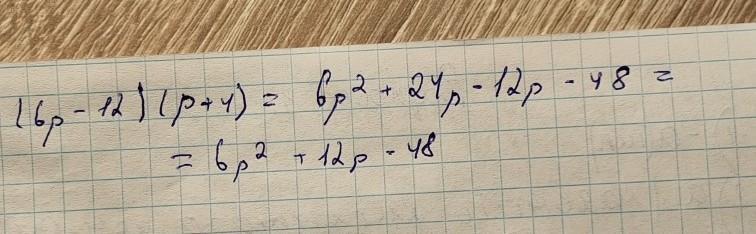 (6p - 12)(p + 4) = 6p² + 24p - 12p - 48 =
= 6p² + 12p - 48